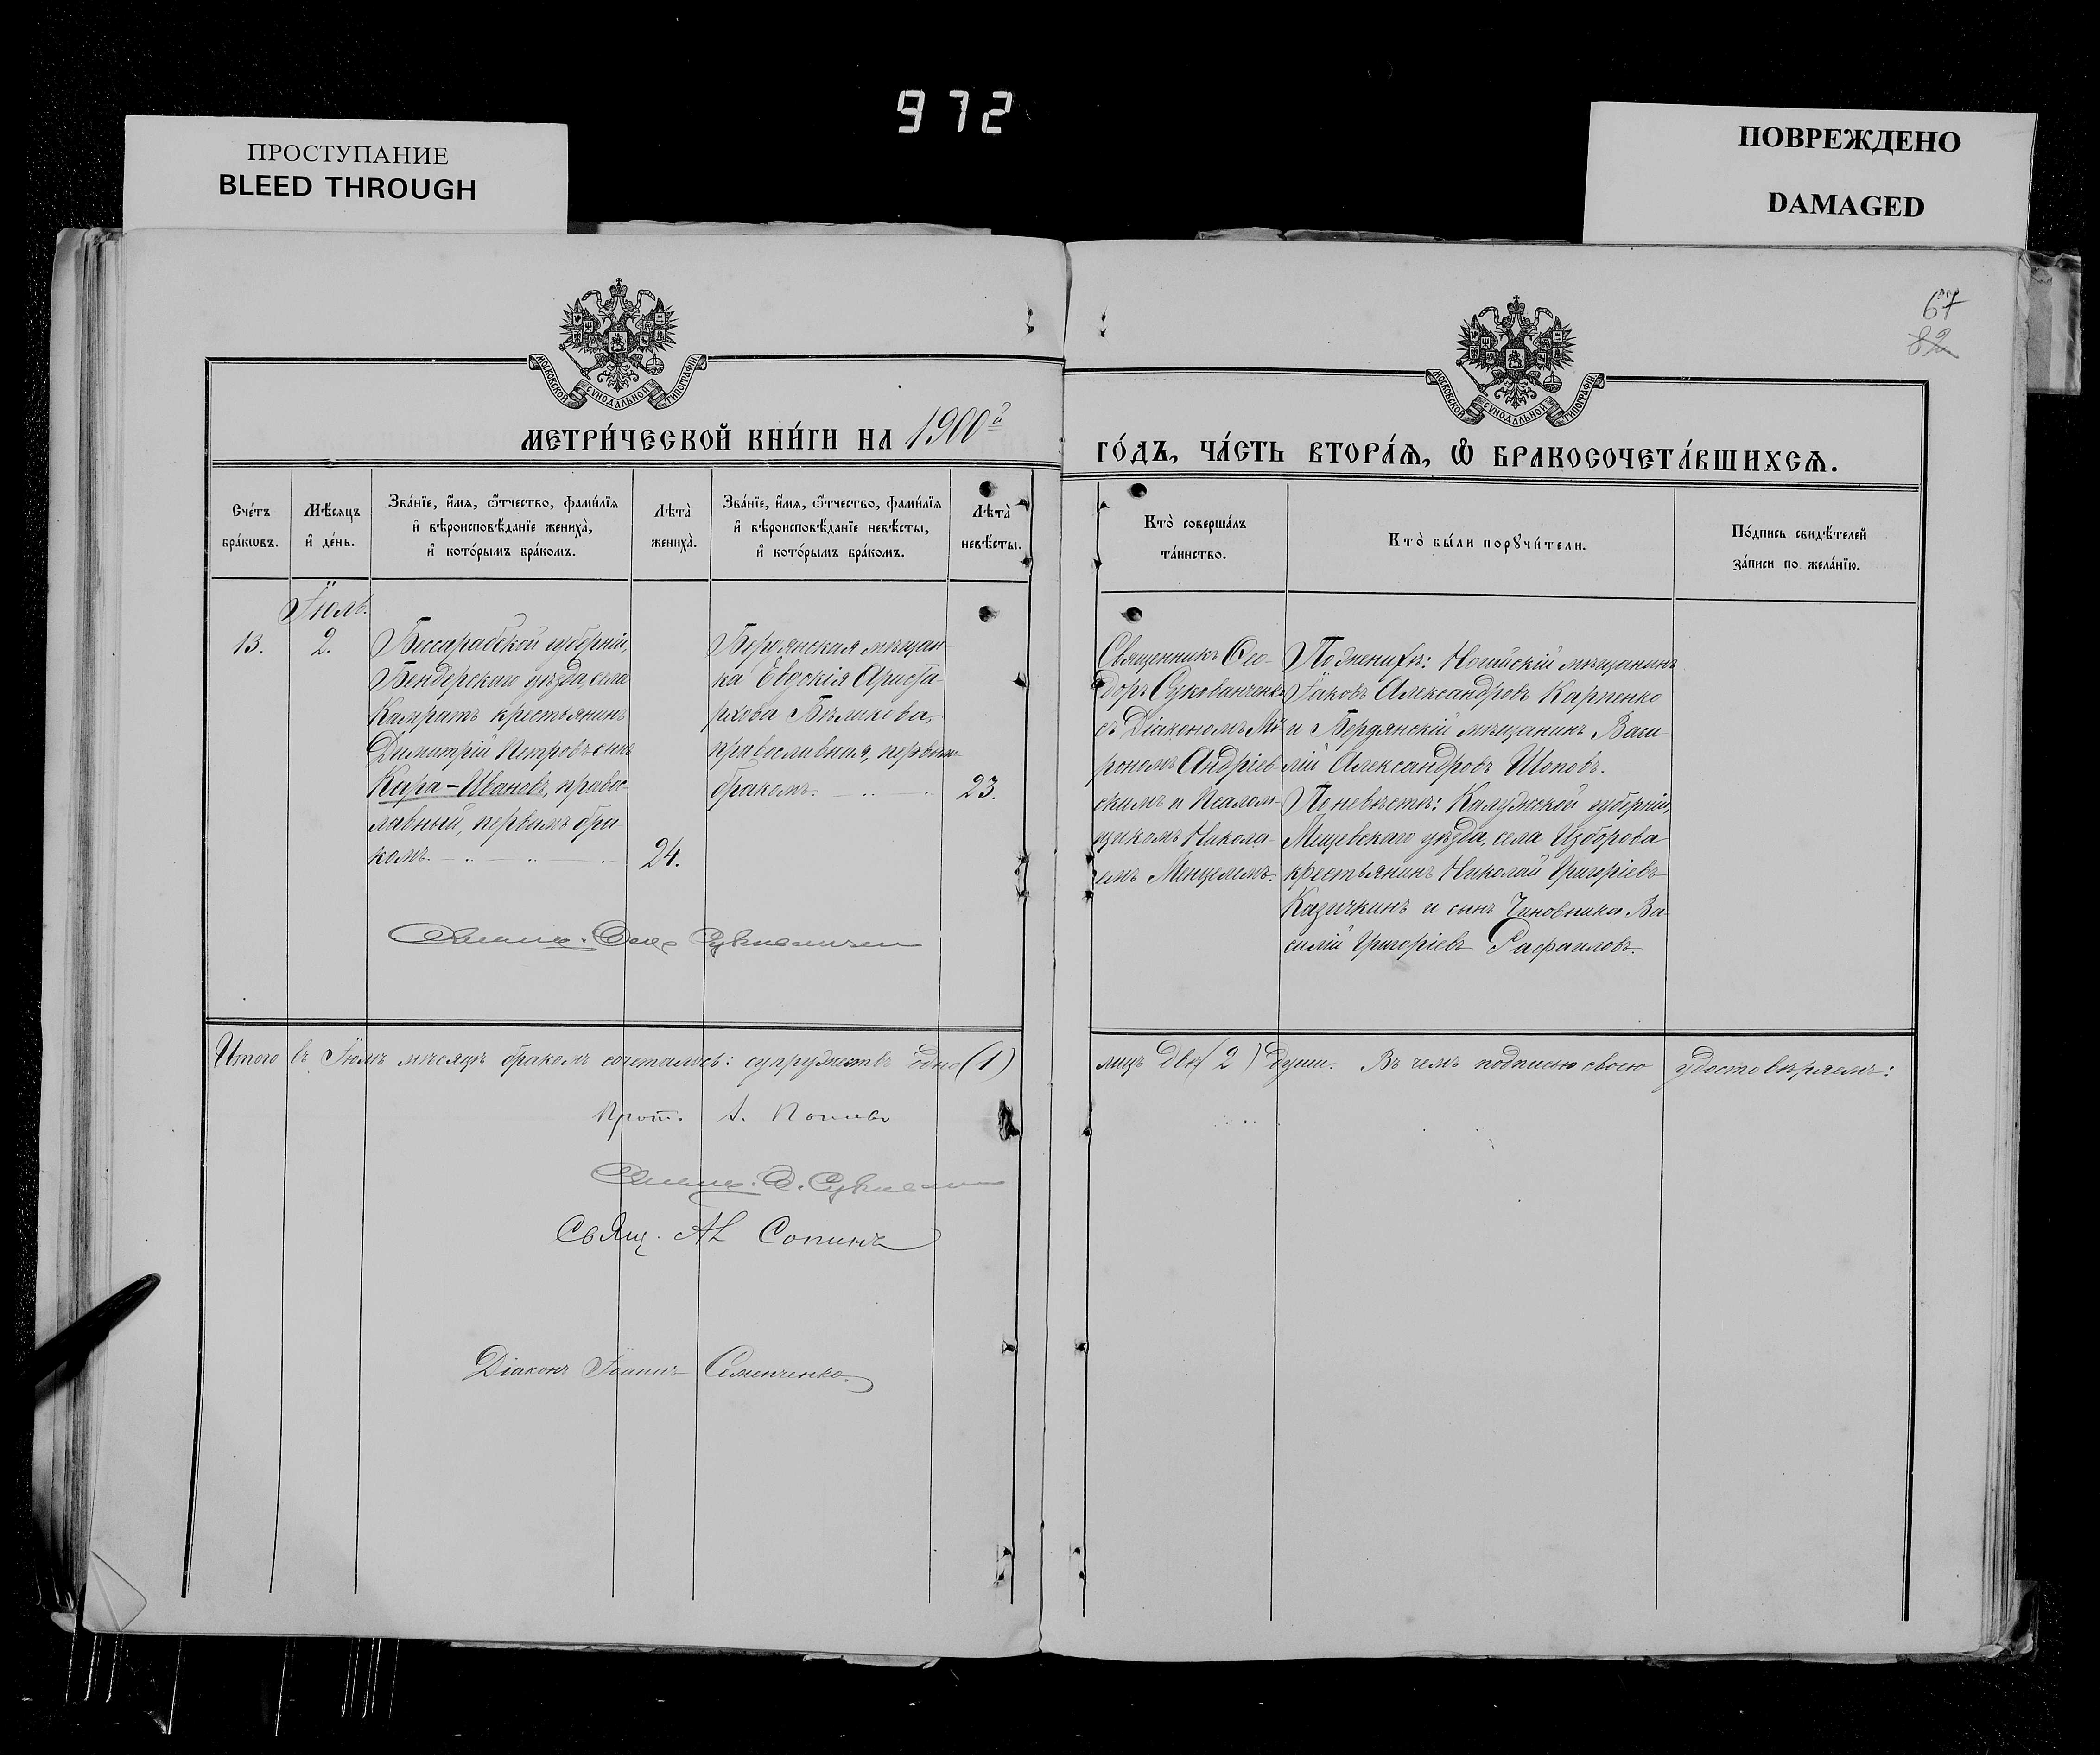 972
ПРОСТУПАНИЕ
BLEED THROUGH
ПОВРЕЖДЕНО
DAMAGED
67
82
МОСКОВСКОЙ СУНОДАЛЬНОЙ ТИПОГРАФІИ
МОСКОВСКОЙ СУНОДАЛЬНОЙ ТИПОГРАФІИ
МЕТРИ́ЧЕСКОЙ КНИ́ГИ НА 1900й
ГО́ДЪ, ЧА́СТЬ ВТОРА́Ѧ, Ѽ БРАКОСОЧЕТА́ВШИХСѦ.
Сче́тъ
бра́кѡвъ.
Мѣ́сяцъ
и҆ де́нь.
Зва́нїе, и҆́мѧ, ѻ҆́тчество, фами́лїѧ
и҆ вѣроисповѣ́данїе жениха̀,
и҆ кото́рымъ бра́комъ.
Лѣта̀
жениха̀.
Зва́нїе, и҆́мѧ, ѻ҆́тчество, фами́лїѧ
и҆ вѣроисповѣ́данїе невѣ́сты,
и҆ кото́рымъ бра́комъ.
Лѣта̀
невѣ́сты.
Кто̀ соверша́лъ
та́инство.
Кто̀ бы́ли порꙋчи́тели.
По́дпись свидѣ́телей
за́писи по жела́нїю.
Іюль.
13.
2.
Бессарабской губерніи,
Бендерскаго уѣзда, села
Камратъ крестьянинъ
Димитрій Петровъ сынъ
Кара-Ивановъ, правос-
лавный, первымъ бра-
комъ.
24.
Бердянская мѣщан-
ка Евдокія Ариста-
рхова Бѣликова,
православная, первымъ
бракомъ.
23.
Священникъ Ѳео-
доръ Сукованченко
съ Діакономъ Ми-
рономъ Андріев-
скимъ и Псалом-
щикомъ Никола-
емъ Менцелемъ.
По женихѣ: Ногайскій мѣщанинъ
Іаковъ Александровъ Карпенко
и Бердянскій мѣщанинъ Васи-
лій Александровъ Шоповъ.
По невѣстѣ: Калужской губерніи,
Мещевскаго уѣзда, села Изборова
крестьянинъ Николай Григоріевъ
Казичкинъ и сынъ Чиновника Ва-
силій Григоріевъ Рафаиловъ.
Итого въ Іюлѣ мѣсяцѣ бракомъ сочеталось: супружествъ одно (1)
лицъ двѣ (2) души. Въ чемъ подписью своею удостовѣряемъ:
Прот. А. Поповъ
Свящ. Ал Сопинъ
Діаконъ Іоаннъ Семенченко.